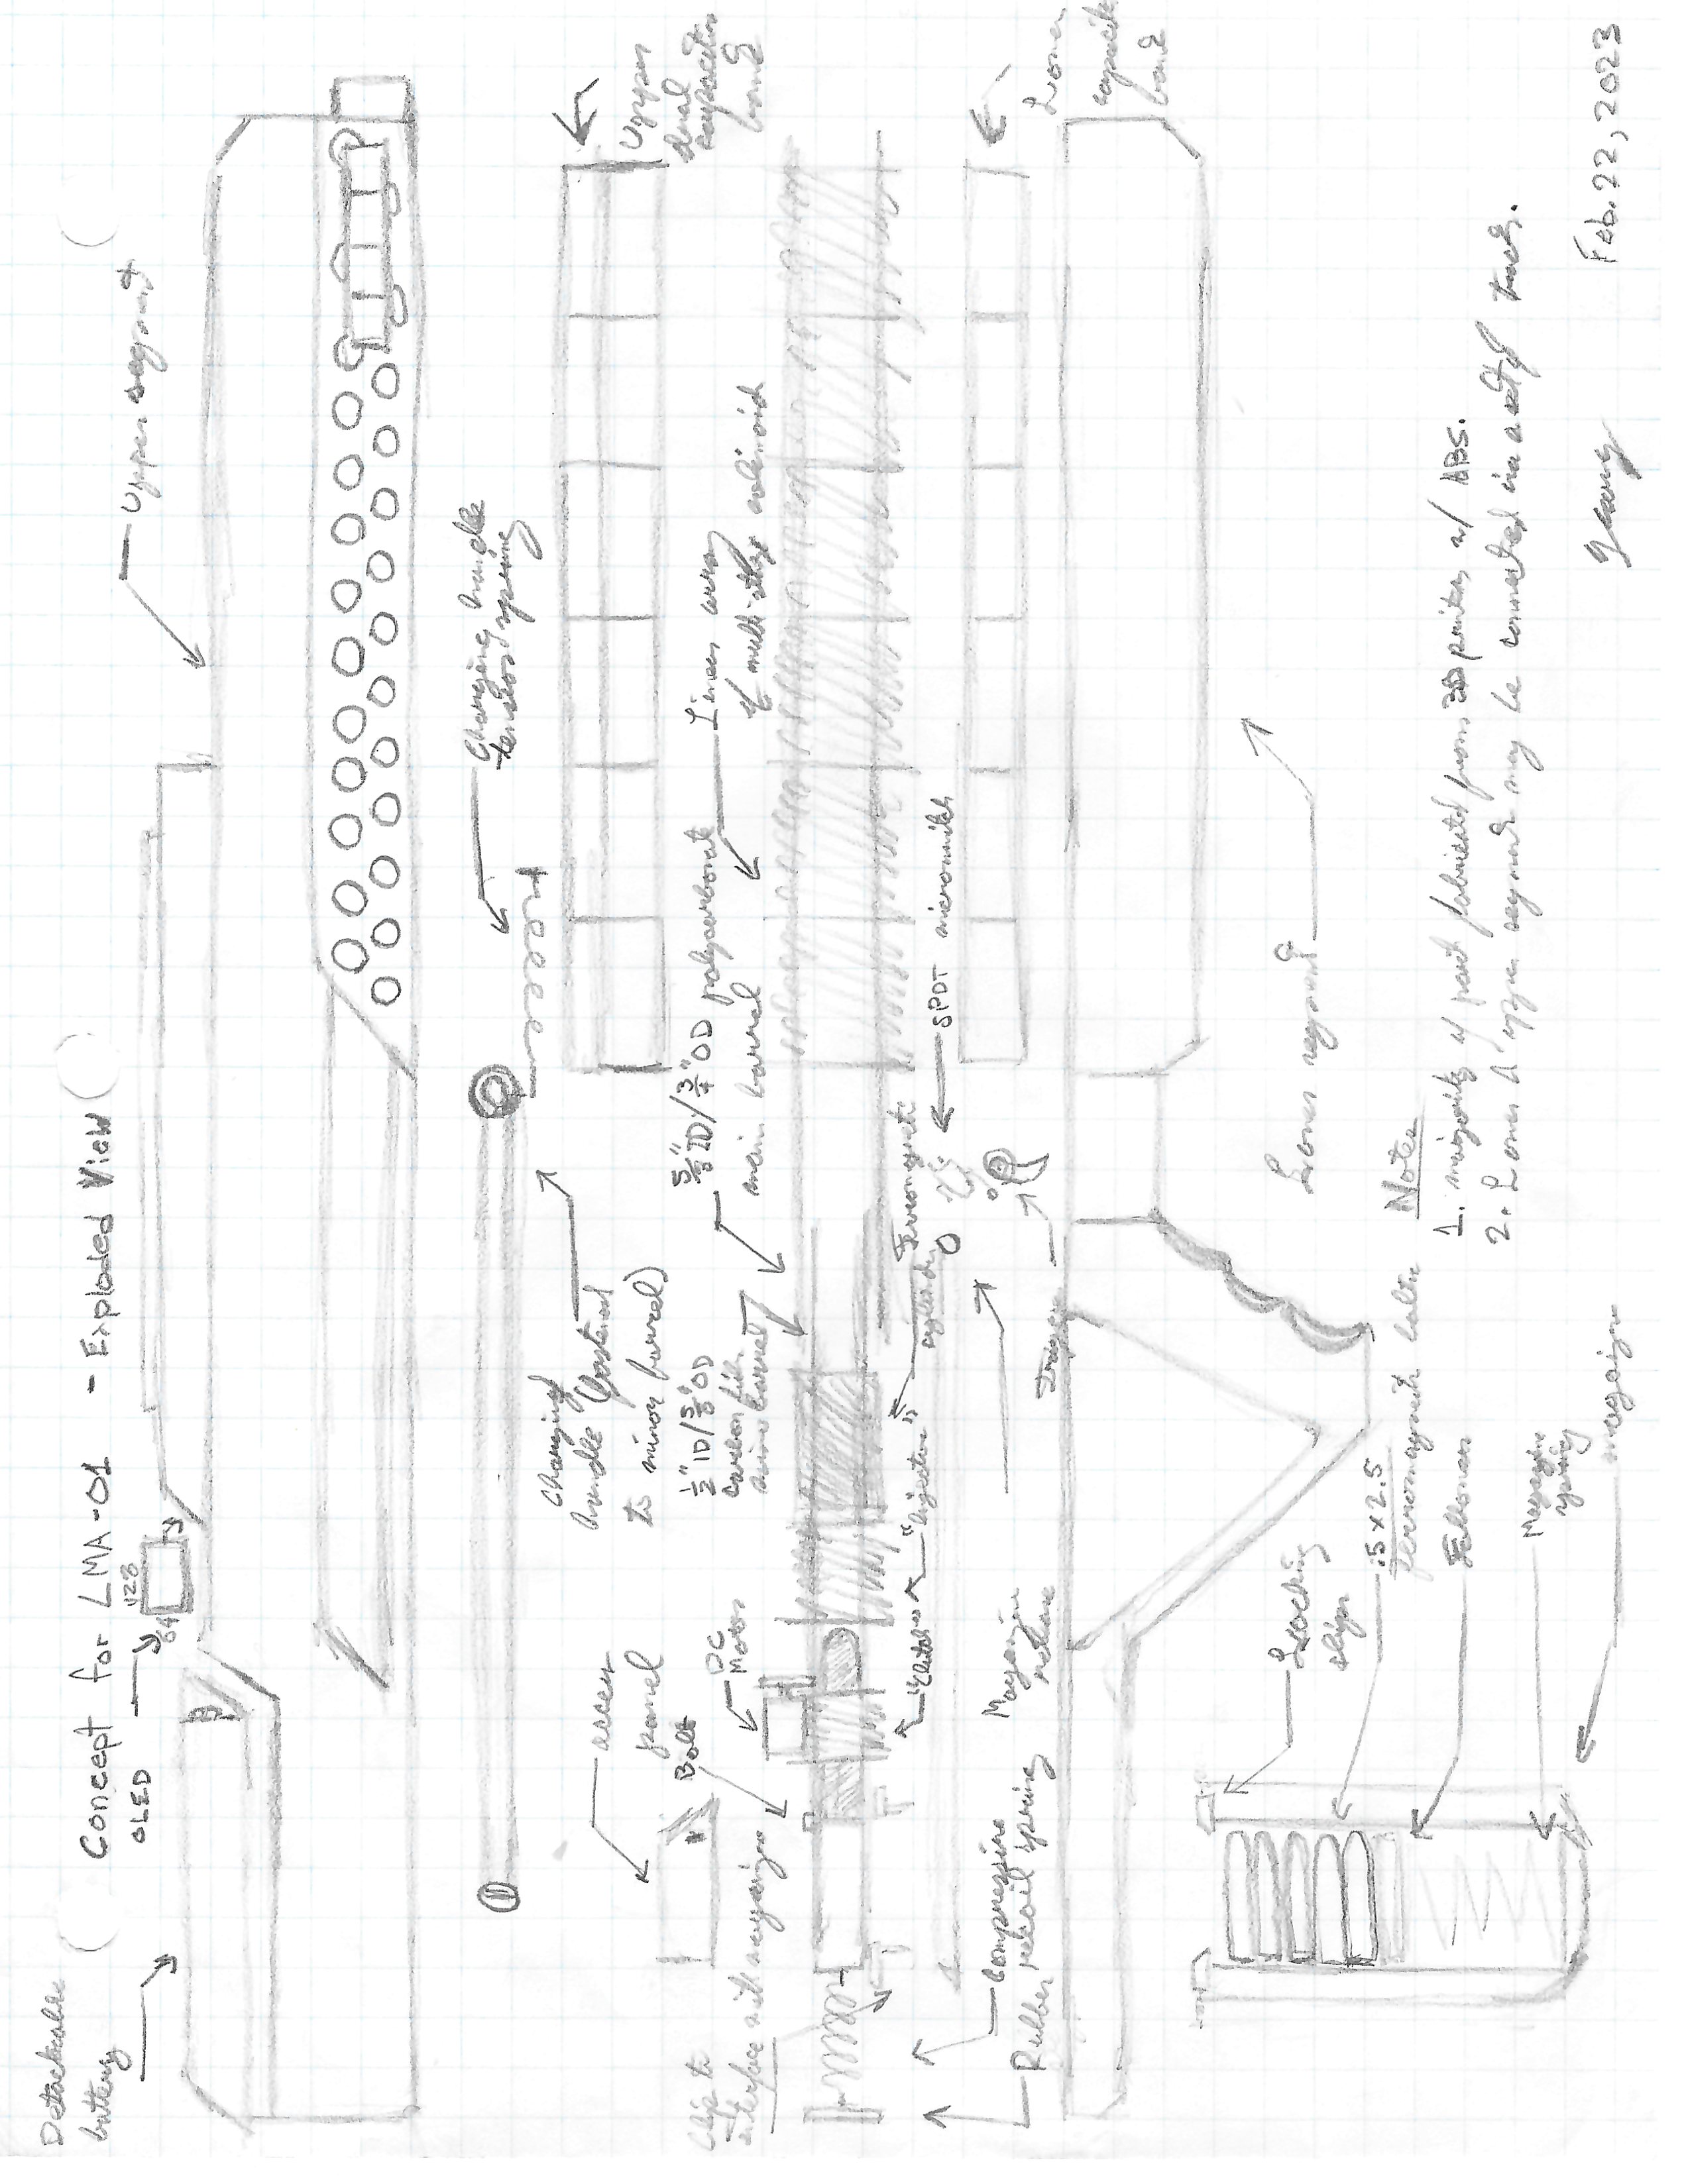 Detachable
battery
Concept for LMA-01 - Exploded View
OLED
128
64
Upper segment
Charging handle
tension spring
Charging
handle (fastened
to minor barrel)
access
panel
Bolt
Clip to
interface with magazine
DC
Motor
1/2" ID/5/8" OD
carbon fiber
minor barrel
5/8" ID/3/4" OD polycarbonate
main barrel
Linear array
of multi-stage solinoid
Upper
dual
capacitor
bank
"Clutch"
"Injector"
Ferromagnetic
cylinder
SPDT microswitch
Compressive
recoil spring
Rubber
Magazine
release
Trigger
Lower
capacitor
bank
Locking
clips
.5 x 2.5
ferromagnetic bolts
Follower
Magazine
spring
magazine
Lower segment
Notes
1. majority of part fabricated from 3D printer w/ ABS.
2. Lower & upper segment may be connected via a set of tracks.
Feb. 22, 2023